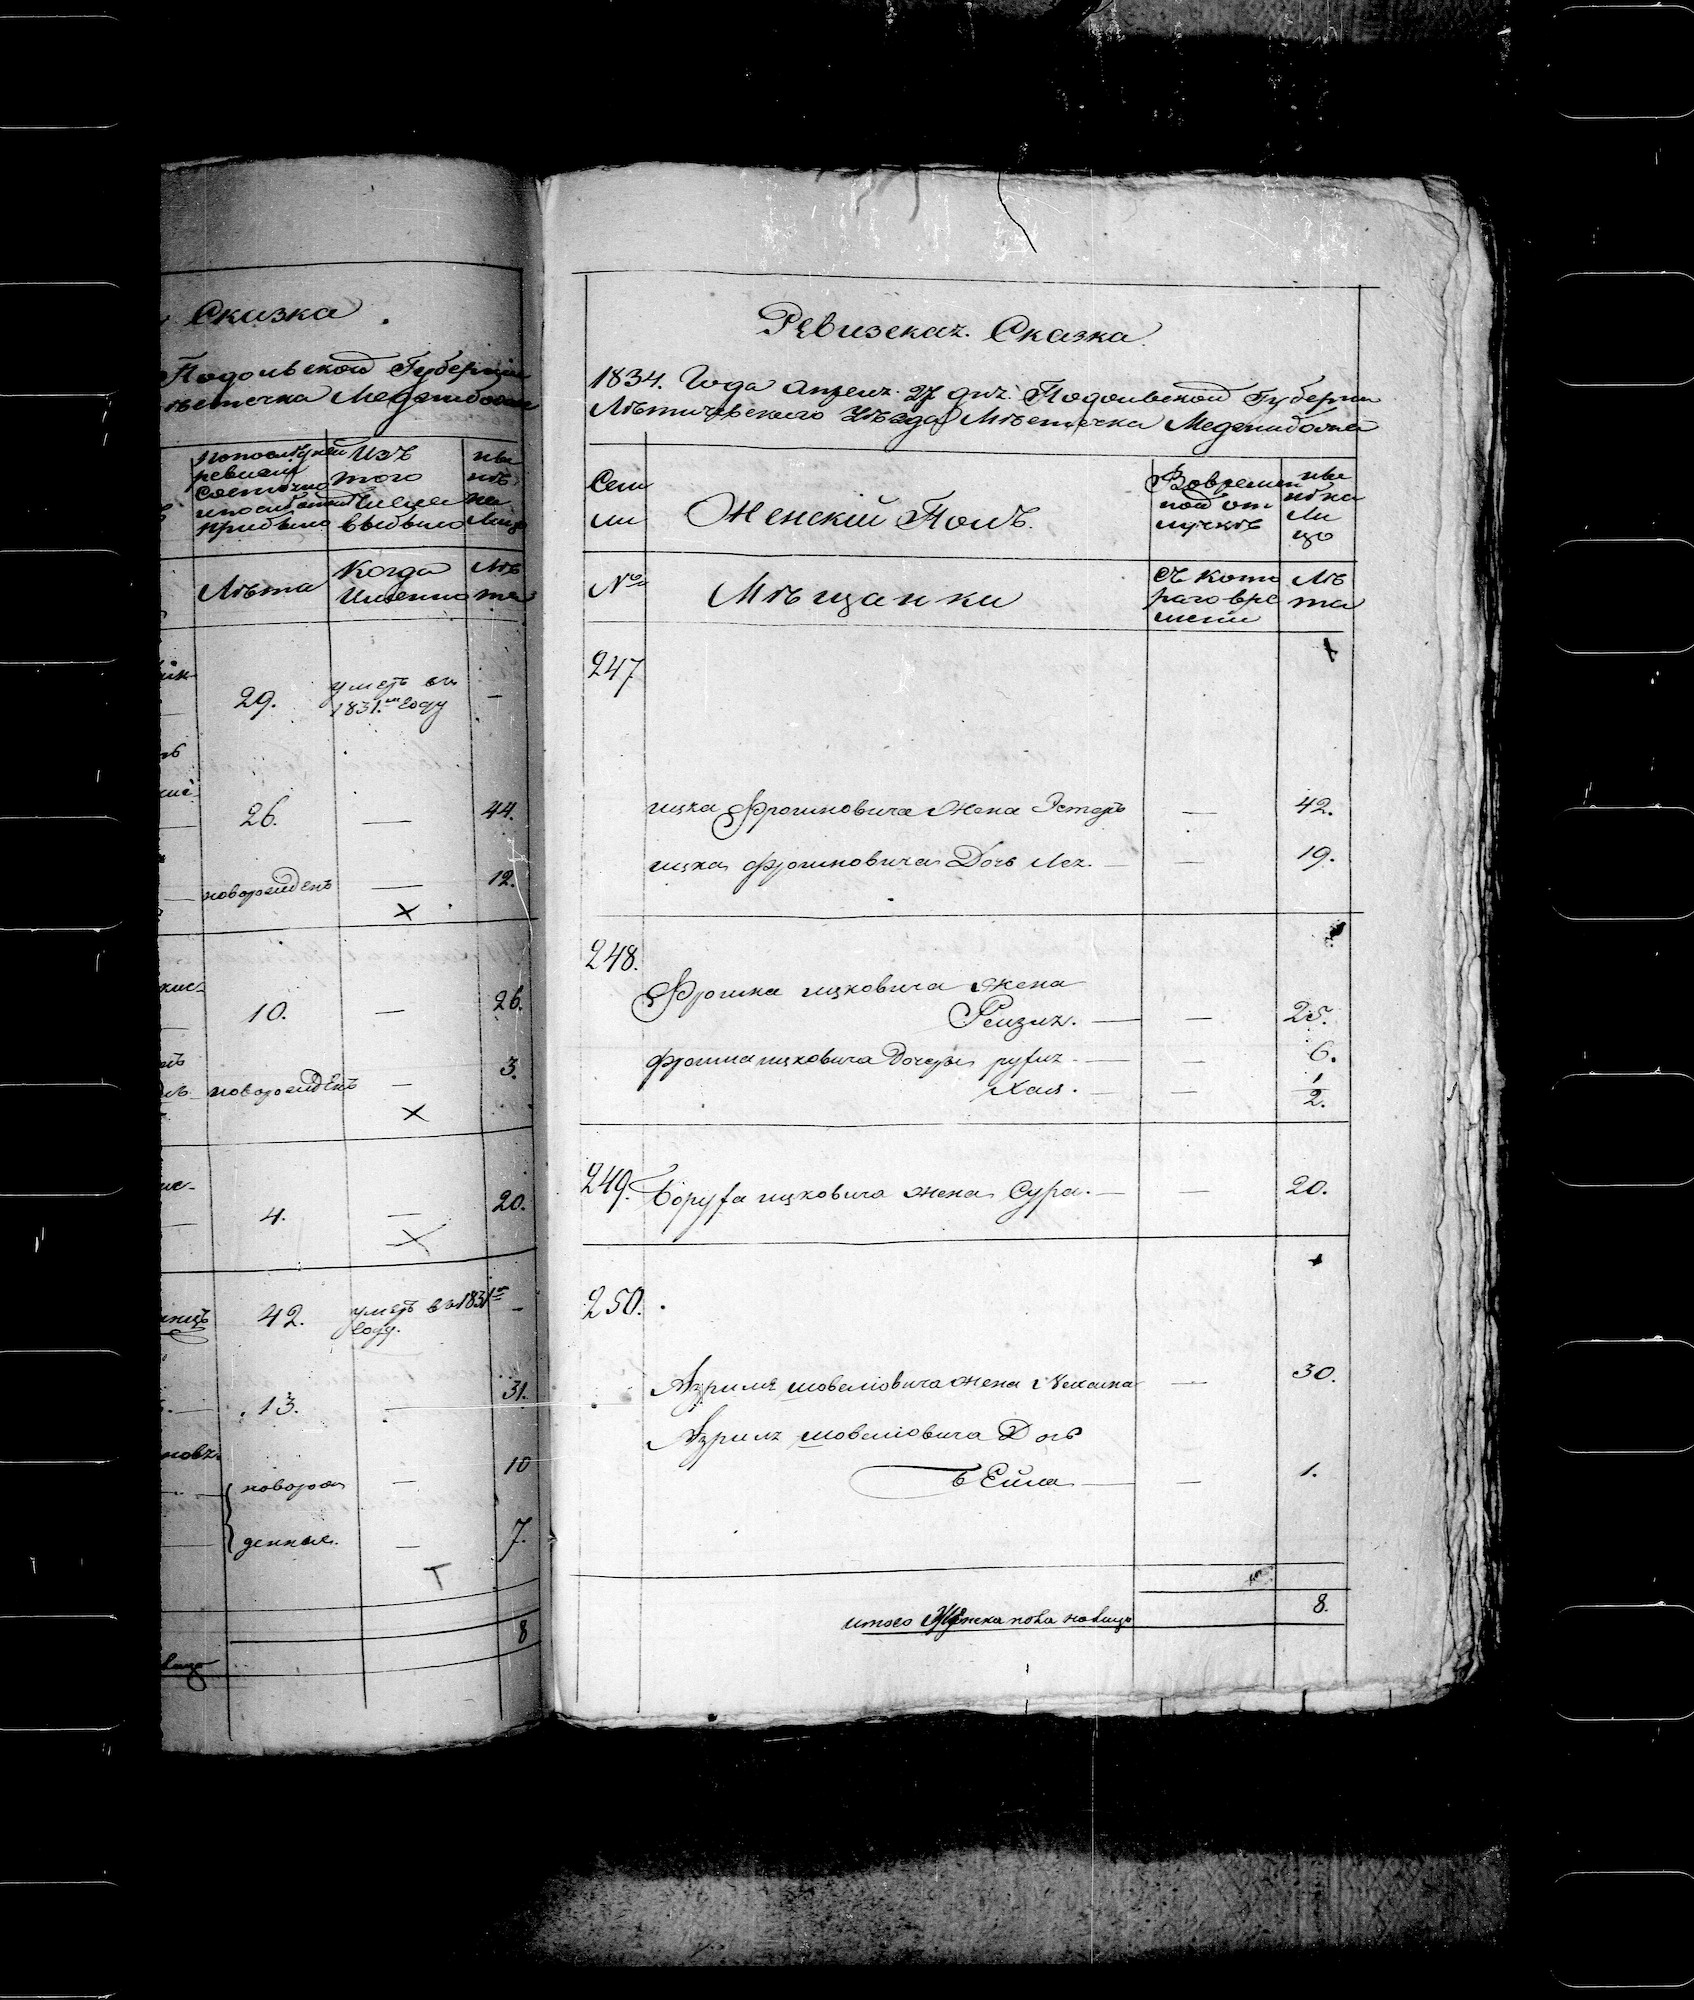 Сказка
Подольской Губерніи
мѣстечка Меджибожа
Изъ
того
числа
выбыло
Лѣта
Когда
Именно
Лѣ
та
29.
умеръ въ
1831.мъ году
—
26.
—
44.
новорожденъ
—
12.
×
10.
—
26.
новорожденъ
—
3.
×
4.
—
20.
×
42.
умеръ въ 1831мъ
году.
—
13.
31.
новорож
—
10
денные.
—
7.
8
Ревизская. Сказка
1834. Года апреля. 27 дня. Подольской Губерніи
Лѣтичевскаго Уѣзда Мѣстечка Меджибожа
Семи
Женскій Полъ.
Вовремен
ной от
лучкѣ
ны
нѣ на
Ли
цо
№
Мѣщанки
съ кото
раго вре
мени
Лѣ
та
247
ицка Фроимовича жена Эстеръ
—
42.
ицка фроимовича Дочь Лея. —
—
19.
248.
Фроима ицковича жена
Рейзя. —
—
25.
фроима ицковича Дочери руфля. —
—
6.
Хая. —
—
1/2.
249.
Боруха ицковича жена Сура. —
—
20.
250.
Азриля шовеліовича жена Нехама
—
30.
Азриля шовеліовича Дочь
Бейла —
—
1.
итого Женска пола налицо
8.